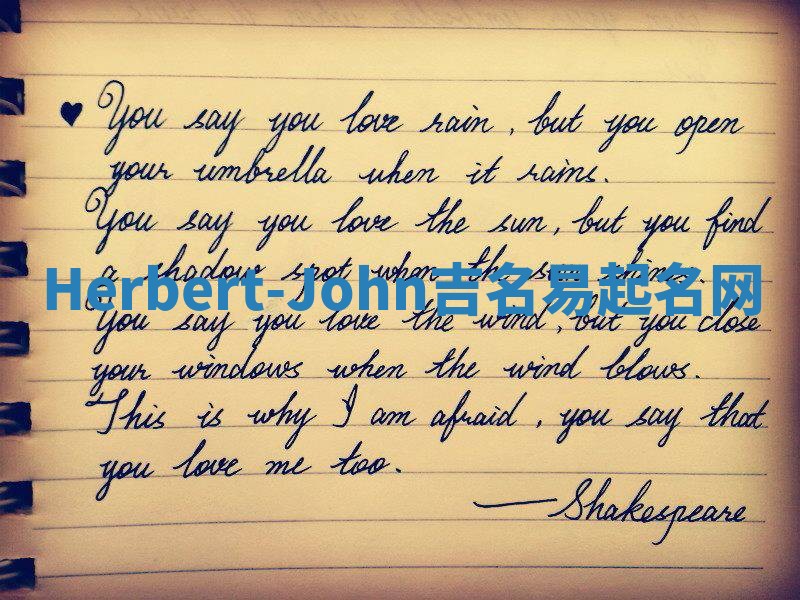 ♥ You say you love rain, but you open
your umbrella when it rains.
You say you love the sun, but you find
a shadow spot when the sun shines.
Herbert-John吉名易起名网
You say you love the wind, but you close
your windows when the wind blows.
This is why I am afraid, you say that
you love me too.
—Shakespeare